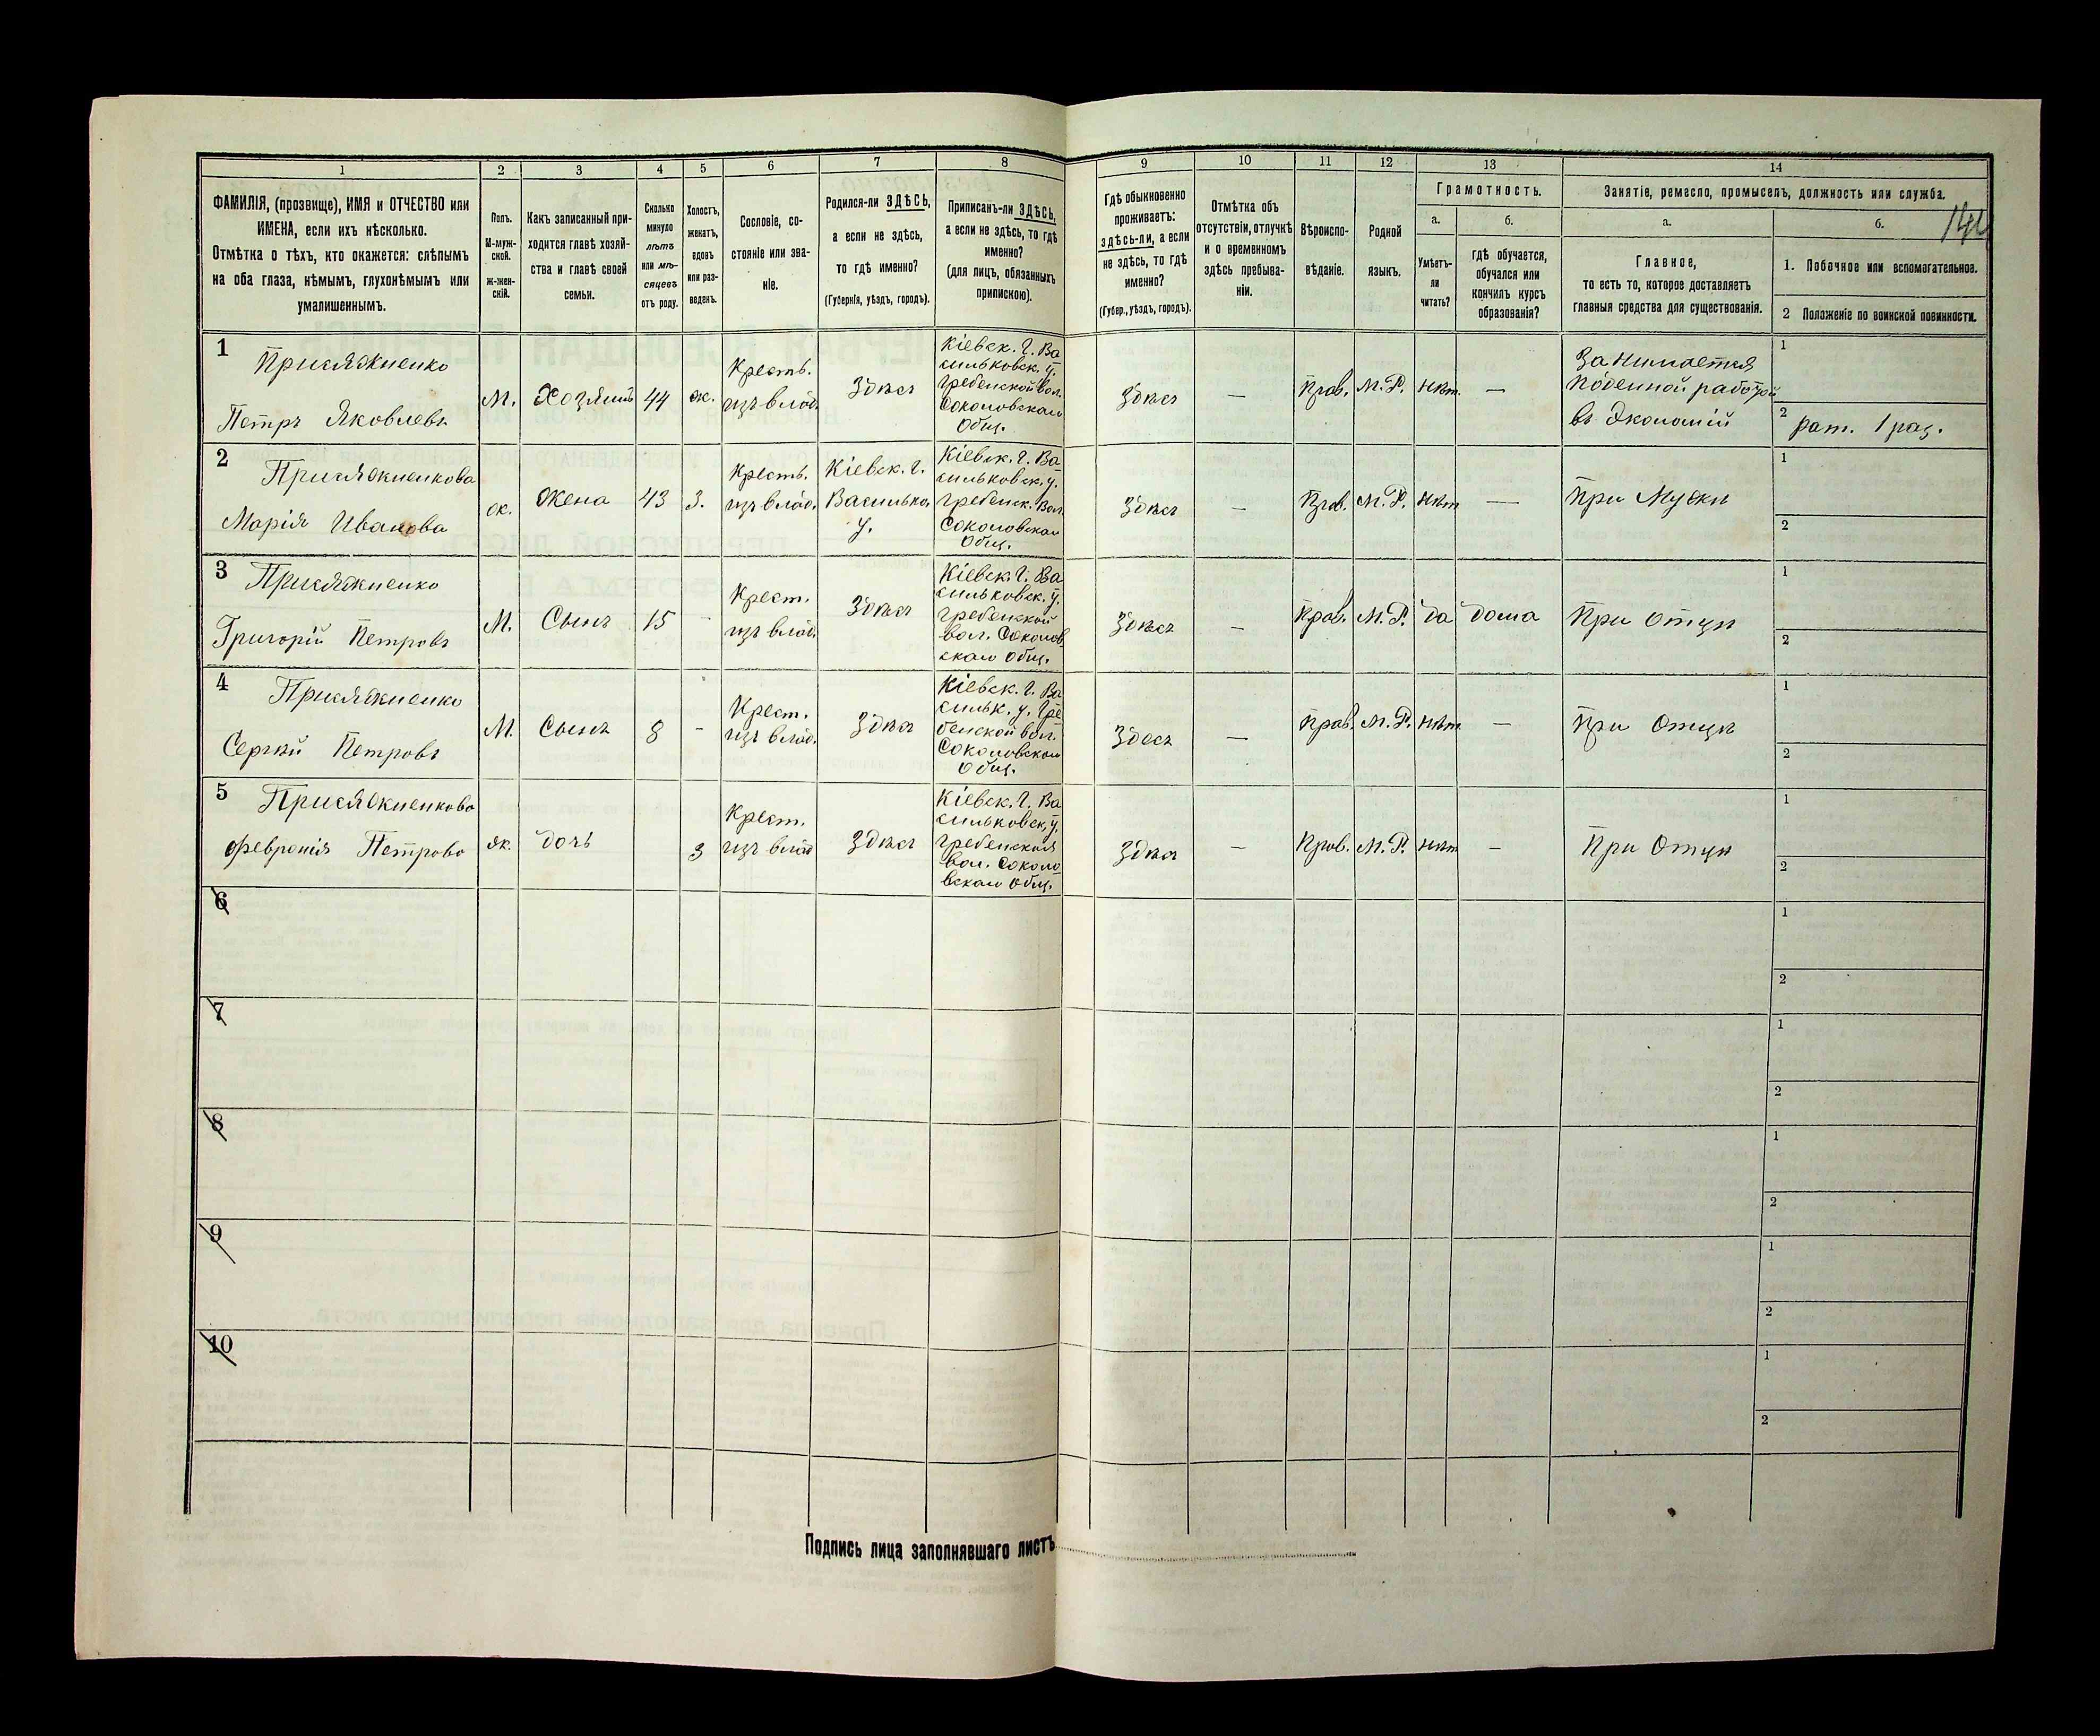 1
2
3
4
5
6
7
8
9
10
11
12
13
14
ФАМИЛІЯ, (прозвище), ИМЯ и ОТЧЕСТВО или
ИМЕНА, если ихъ нѣсколько.
Отмѣтка о тѣхъ, кто окажется: слѣпымъ
на оба глаза, нѣмымъ, глухонѣмымъ или
умалишеннымъ.
Полъ.
М-муж-
ской.
ж-жен-
скій.
Какъ записанный при-
ходится главѣ хозяй-
ства и главѣ своей
семьи.
Сколько
минуло
лѣтъ
или мѣ-
сяцевъ
отъ роду.
Холостъ,
женатъ,
вдовъ
или раз-
веденъ.
Сословіе, со-
стояніе или зва-
ніе.
Родился-ли ЗДѢСЬ,
а если не здѣсь,
то гдѣ именно?
(Губернія, уѣздъ, городъ).
Приписанъ-ли ЗДѢСЬ,
а если не здѣсь, то гдѣ
именно?
(для лицъ, обязанныхъ
припискою).
Гдѣ обыкновенно
проживаетъ:
здѣсь-ли, а если
не здѣсь, то гдѣ
именно?
(Губер., уѣздъ, городъ).
Отмѣтка объ
отсутствіи, отлучкѣ
и о временномъ
здѣсь пребыва-
ніи.
Вѣроиспо-
вѣданіе.
Родной
языкъ.
Грамотность.
а.
Умѣетъ-
ли
читать?
б.
гдѣ обучается,
обучался или
кончилъ курсъ
образованія?
Занятіе, ремесло, промыселъ, должность или служба.
а.
Главное,
то есть то, которое доставляетъ
главныя средства для существованія.
б.
1. Побочное или вспомогательное.
2 Положеніе по воинской повинности.
1
Присяжненко
Петръ Яковлевъ
М.
Хозяинъ
44
ж.
Кресть.
изъ влад.
Здѣсь
Кіевск. г. Ва
сильковск. у.
Гребенской вол.
Соколовскаго
Общ.
Здѣсь
—
Прав.
М. Р.
нѣт.
—
Занимается
поденной работой
въ Экономій
1
2 рат. 1 раз.
2
Присяжненкова
Марія Иванова
ж.
Жена
43
З.
Кресть.
изъ влад.
Кіевск. г.
Васильков.
у.
Кіевск. г. Ва
сильковск. у.
Гребенск. Вол.
Соколовскаго
Общ.
Здѣсь
—
Прав.
М. Р.
нѣт
—
При Мужѣ
1
2
3
Присяжненко
Григорій Петровъ
М.
Сынъ
15
-
Крест.
изъ влад.
Здѣсь
Кіевск. г. Ва
сильковск. у.
Гребенской
вол. Соколов
скаго Общ.
Здѣсь
—
Прав.
М. Р.
да
дома
При Отцѣ
1
2
4
Присяжненко
Сергѣй Петровъ
М.
Сынъ
8
-
Крест.
изъ влад.
Здѣсь
Кіевск. г. Ва
сильк. у. Гре
бенской вол.
Соколовскаго
Общ.
Здесь
—
Прав.
М. Р.
нѣт
—
При Отцѣ
1
2
5
Присяжненкова
Февронія Петрова
ж.
дочь
3
Крест.
изъ влад
Здѣсь
Кіевск. г. Ва
сильковск. у.
Гребенской
вол. Соколо
вскаго Общ.
Здѣсь
—
Прав.
М. Р.
нѣт
—
При Отцѣ
1
2
6
1
2
7
1
2
8
1
2
9
1
2
10
1
2
Подпись лица заполнявшаго листъ